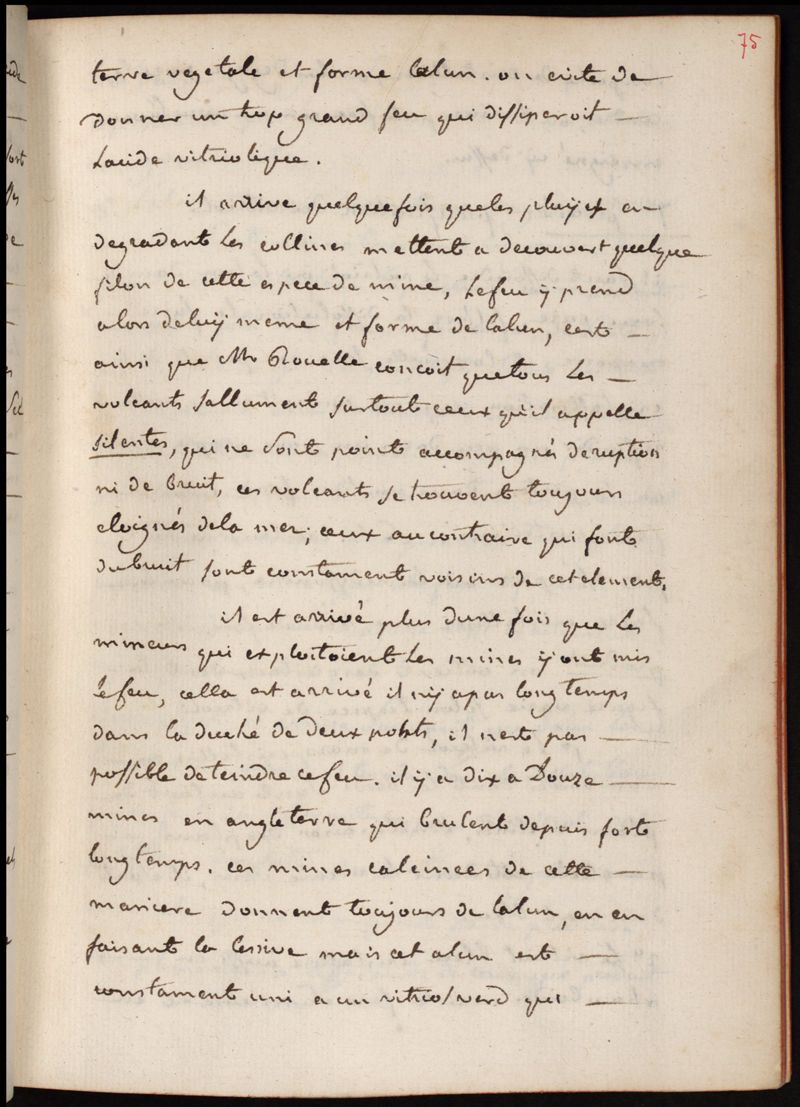 75
terre vegetale et forme lalun. on evite de
donner un trop grand feu qui dissiperoit
Lacide vitriolique.
il arrive quelquefois que les pluyes en
degradant Les collines mettent a decouvert quelque
filon de cette espece de mine, Le feu y prend
alors de luy meme et forme de lalun, cest
ainsi que Mr Rouelle concoit que tous Les
volcants sallument surtout ceux qu'il appelle
silentes, qui ne sont point accompagnés deruption
ni de bruit, ces volcants se trouvent toujours
eloignés de la mer; ceux au contraire qui font
du bruit sont constament voisins de cet element.
il est arrivé plus dune fois que Les
mineurs qui exploitoient Les mines y ont mis
le feu, cella est arrivé il ny a pas longtemps
dans la duché de deux ponts, il nest pas
possible deteindre ce feu. il y a dix a Douze
mines en angleterre qui brulent depuis fort
longtemps. ces mines calcinees de cette
maniere donnent toujours de lalun, en en
faisant la lessive mais cet alun est
constament uni a un vitriol verd qui